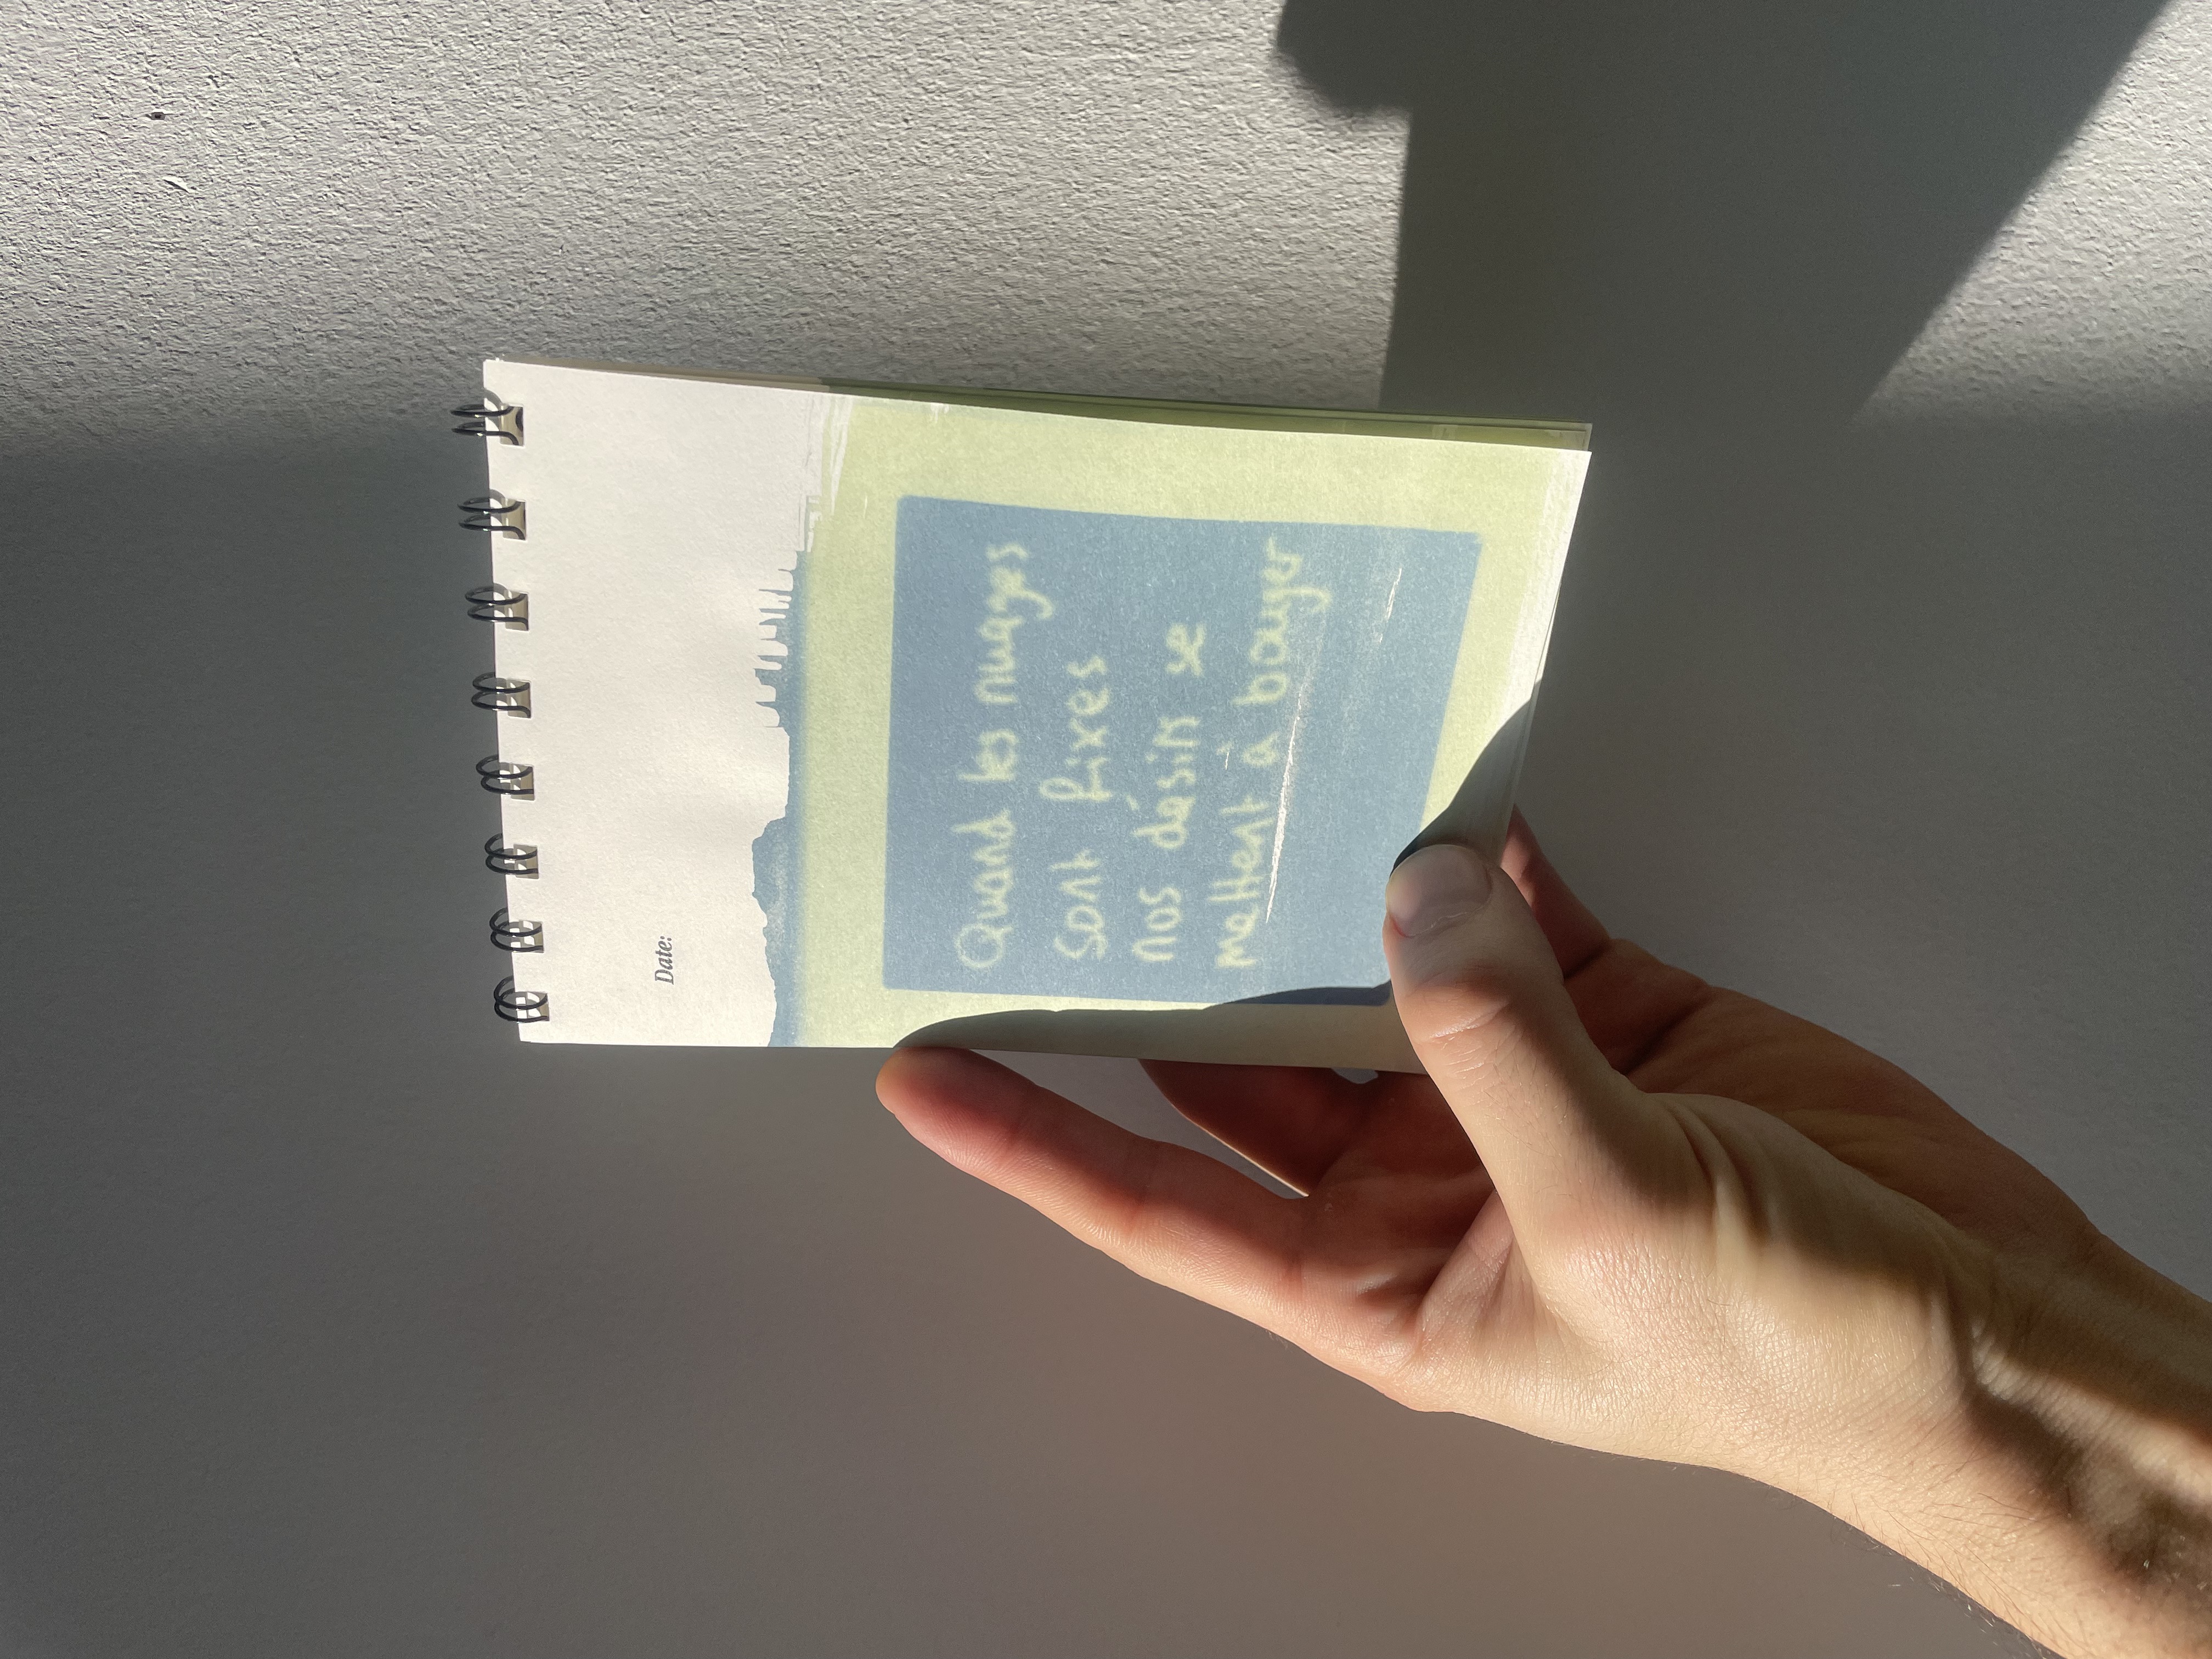 Date:
Quand les nuages
sont fixes
nos désirs se
mettent à bouger